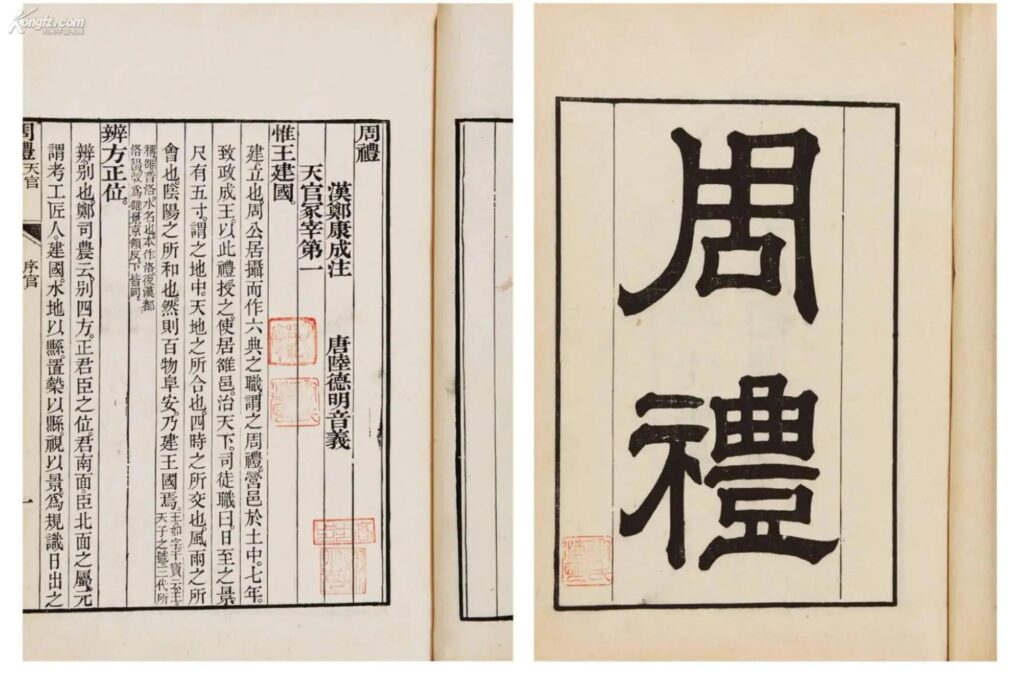 Kongfz.com
周禮
周禮
漢鄭康成注 唐陸德明音義
天官冢宰第一
惟王建國。
建立也。周公居攝而作六典之職。謂之周禮。營邑於土中。七年。
致政成王。以此禮授之。使居雒邑。治天下。司徒職曰。日至之景
尺有五寸。謂之地中。天地之所合也。四時之所交也。風雨之所
會也。陰陽之所和也。然則百物阜安。乃建王國焉。
王如字。干寶云。王。
天子之號。三代所
稱。雒音洛。水名也。本作洛。後漢都
洛陽。改爲雒。景京領反。下皆同。
辨方正位。
辨。別也。鄭司農云。別四方。正君臣之位。君南面。臣北面之屬。元
謂考工匠人。建國。水地以縣。置槷以縣。視以景。爲規識日出之
周禮 天官 序官 一